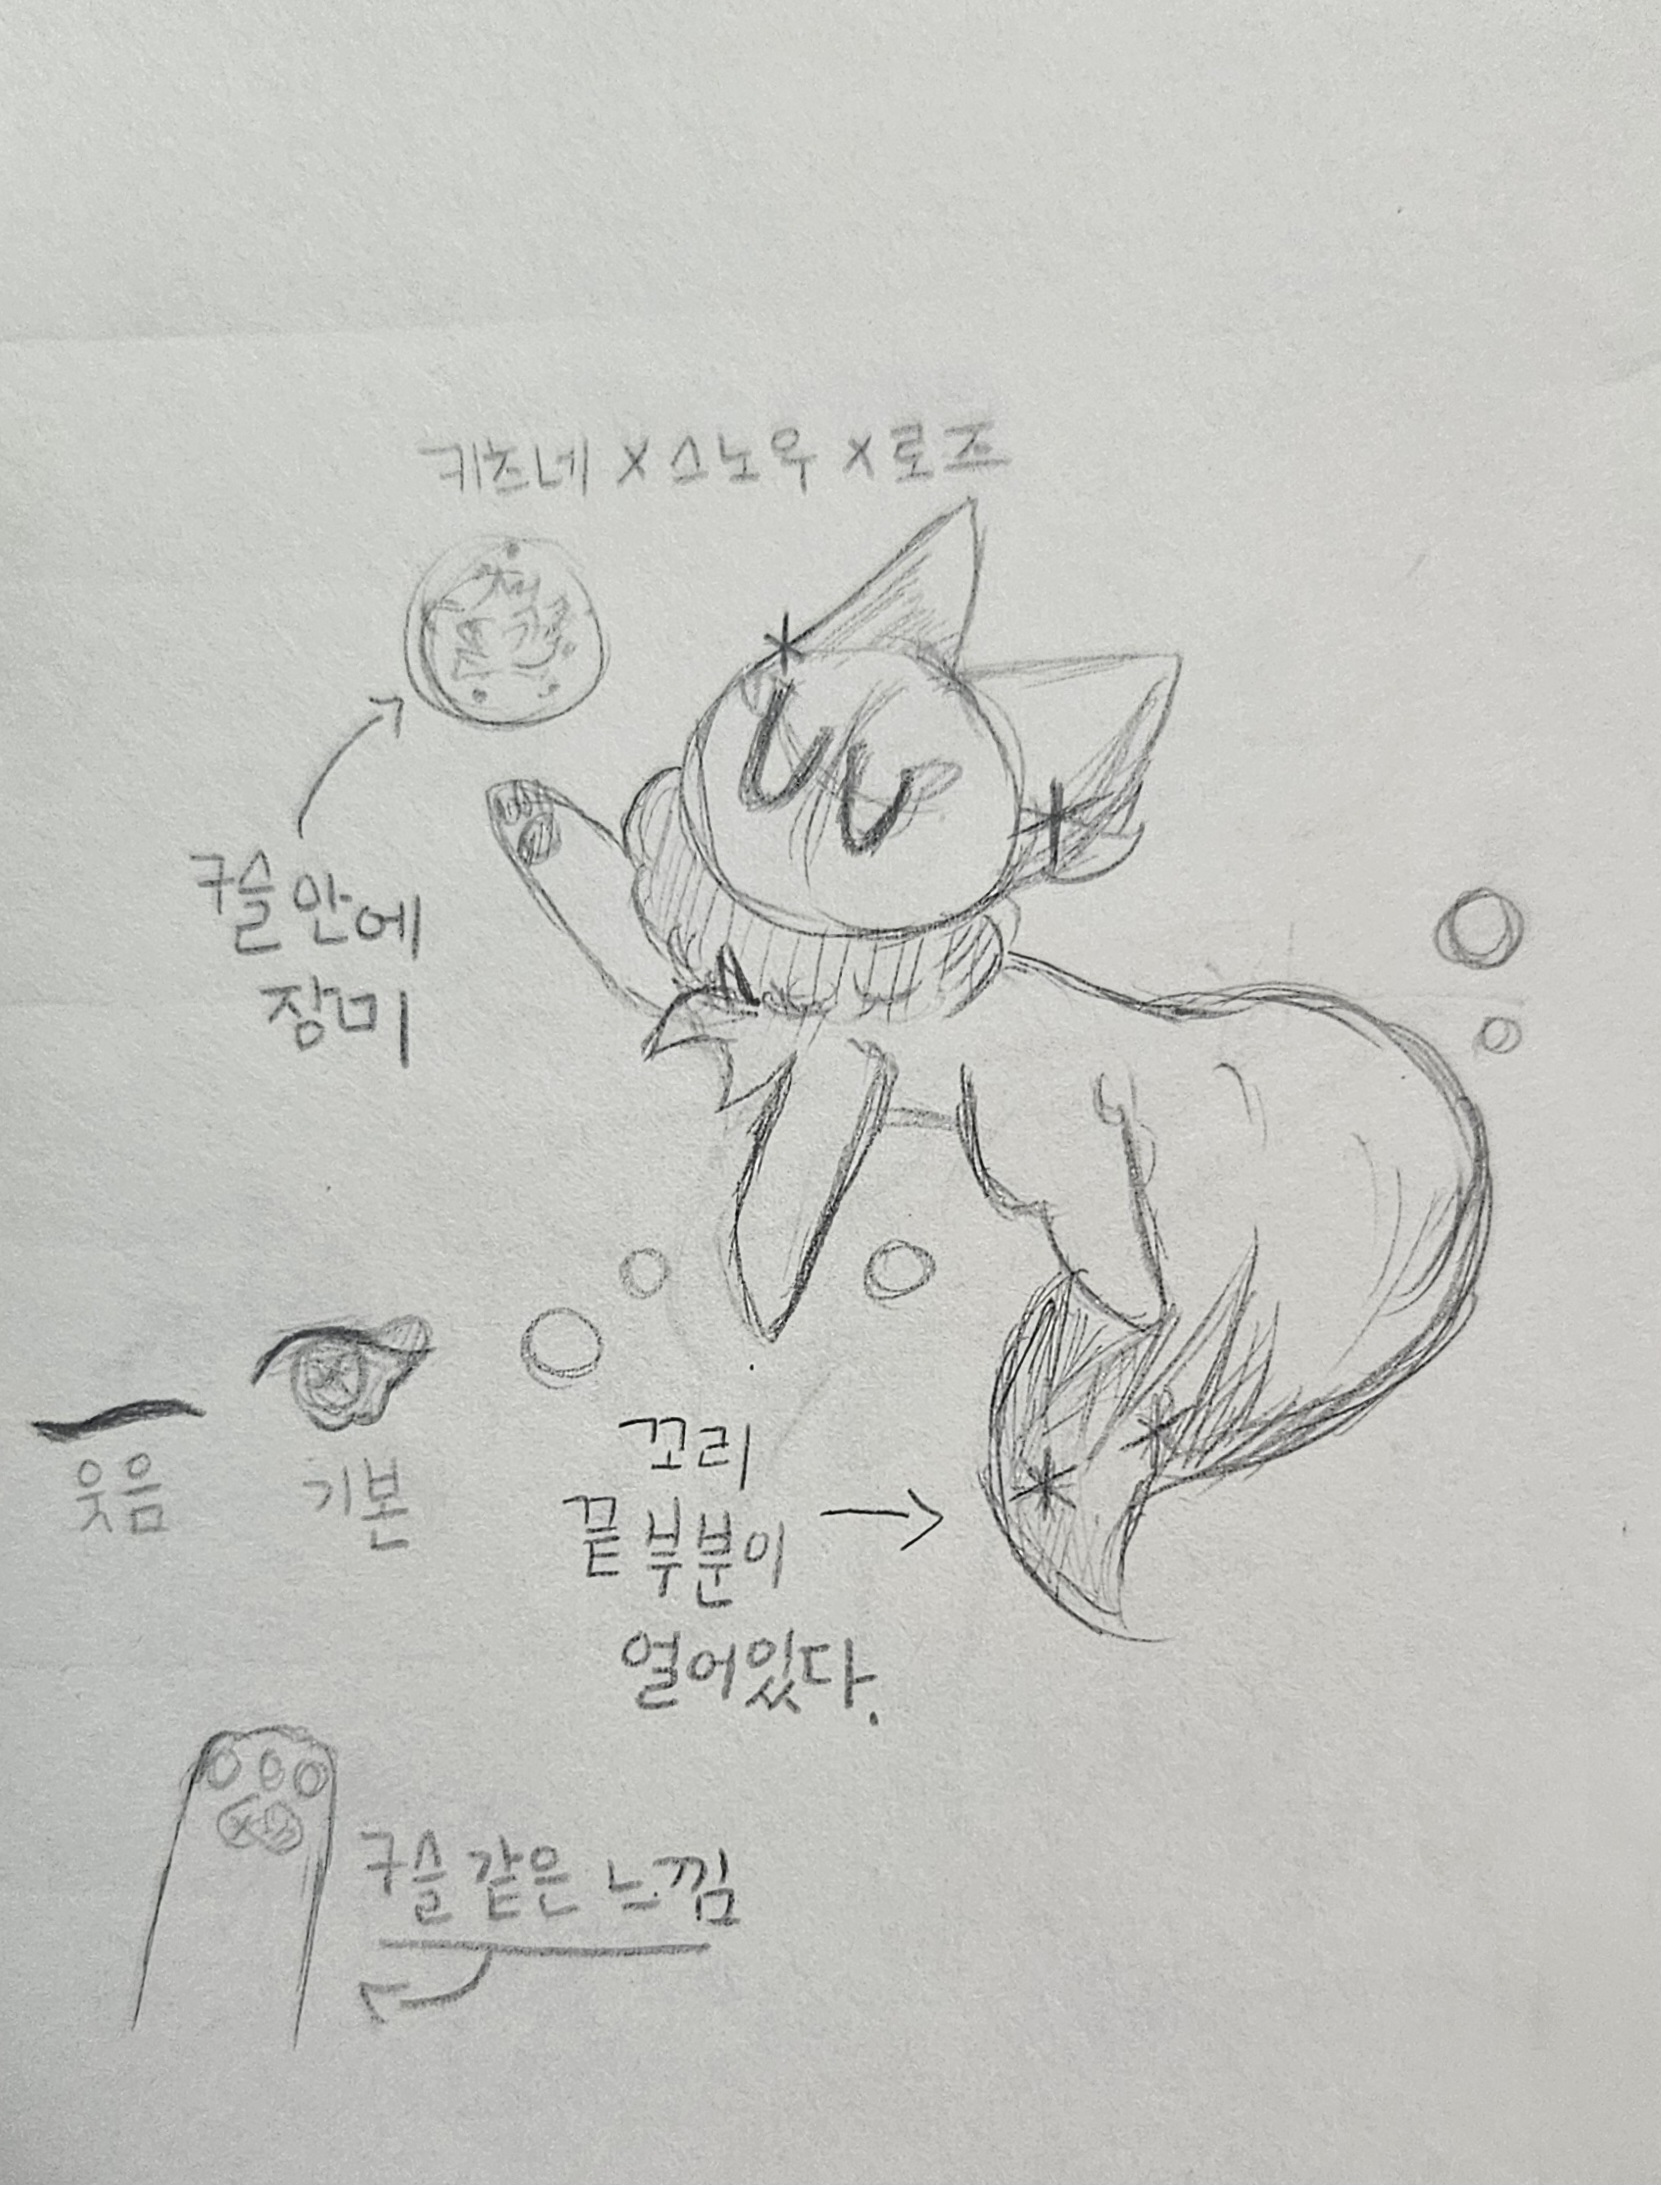 키츠네 x 스노우 x 로즈
구슬 안에
장미
웃음
기본
꼬리
끝 부분이
얼어있다.
구슬 같은 느낌